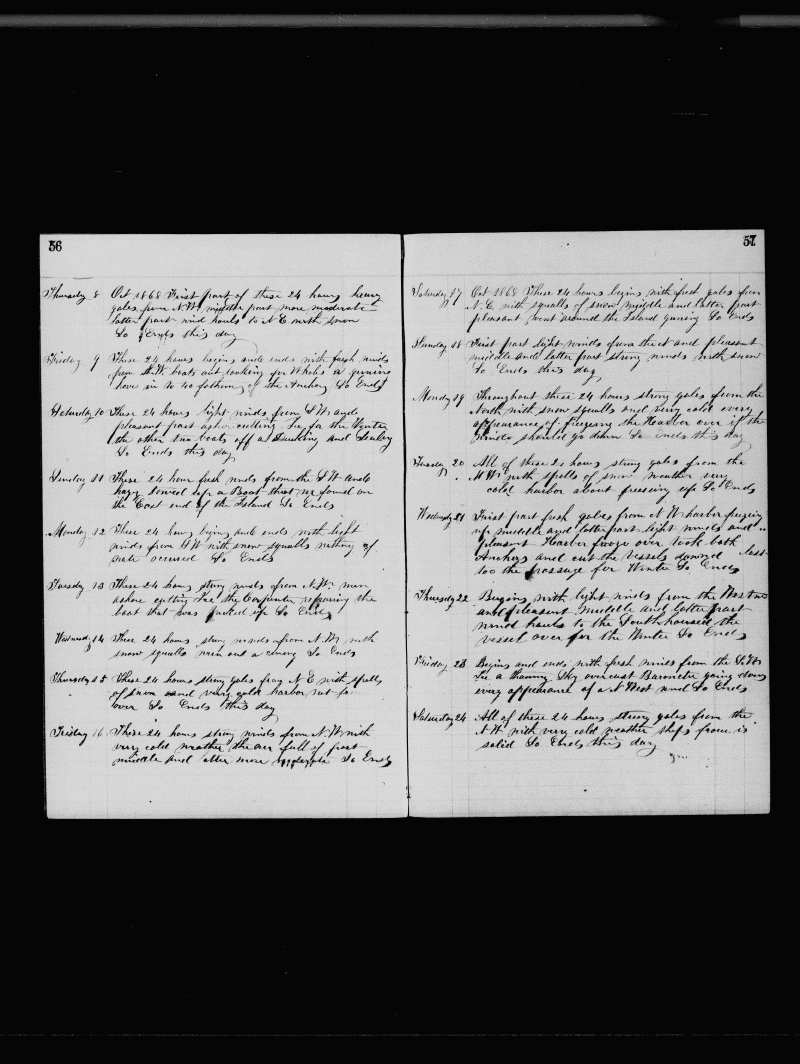 56
Thursday 8 Oct 1868 First part of these 24 hours heavy
gales from N.W. middle part more moderate
latter part wind hauls to N E with snow
So Ends this day
Friday 9 These 24 hours begins and ends with fresh winds
from N.W. boats out looking for Whales a gunning
love in 10 to 40 fathoms of the Anchors So Ends
Saturday 10 These 24 hours light winds from S W and
pleasant part ashore cutting Ice for the Winter
the other two boats off a Ducking and Sealing
So Ends this day
Sunday 11 These 24 hour fresh winds from the S W and
hazy towed up a Boat that we found on
the East end of the Island So Ends
Monday 12 These 24 hours begins and ends with light
winds from S W with snow squalls nothing of
note occured So Ends
Tuesday 13 These 24 hours strong winds from N.W. men
ashore cutting Ice the Carpenter repairing the
boat that was picked up So Ends
Wednesday 14 These 24 hours strong winds from N.W. with
snow squalls went out a So Ends
Thursday 15 These 24 hours strong gales from N E with spells
of snow and very cold harbor not
over So Ends this day
Friday 16 These 24 hours strong winds from N.W. with
very cold weather the air full of frost
middle and latter more moderate So Ends
57
Saturday 17 Oct 1868 These 24 hours begins with fresh gales from
N.E. with squalls of snow middle and latter part
pleasant went around the Island guning So Ends
Sunday 18 First part light winds from the N and pleasant
middle and latter part strong winds with snow
So Ends this day
Monday 19 Throughout these 24 hours strong gales from the
North with snow squalls and very cold every
appearance of freezing the Harbor over if the
winds should go down So Ends this day
Tuesday 20 All of these 24 hours strong gales from the
N W with spells of snow weather very
cold harbor about freezing up So Ends
Wednesday 21 First part fresh gales from N W harbor freezing
up middle and latter part light winds and
pleasant Harbor froze over took both
Anchors and cut the Vessels down
too the passage for Winter So Ends
Thursday 22 Begins with light winds from the West
and pleasant Middle and latter part
wind hauls to the South housed the
vessel over for the Winter So Ends
Friday 23 Begins and ends with fresh winds from the S.W.
Ice a thawing Sky overcast Barometer going down
every appearance of a N West wind So Ends
Saturday 24 All of these 24 hours strong gales from the
N W with very cold weather ships froze is
solid So Ends this day